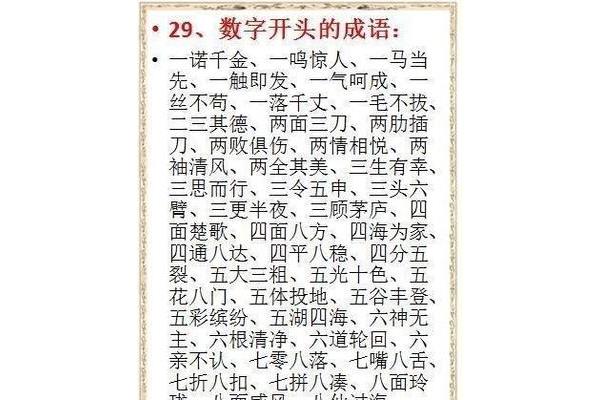 • 29、数字开头的成语：
• 一诺千金、一鸣惊人、一马当
先、一触即发、一气呵成、一
丝不苟、一落千丈、一毛不拔、
二三其德、两面三刀、两肋插
刀、两败俱伤、两情相悦、两
袖清风、两全其美、三生有幸、
三思而行、三令五申、三头六
臂、三更半夜、三顾茅庐、四
面楚歌、四面八方、四海为家、
四通八达、四平八稳、四分五
裂、五大三粗、五光十色、五
花八门、五体投地、五谷丰登、
五彩缤纷、五湖四海、六神无
主、六根清净、六道轮回、六
亲不认、七零八落、七嘴八舌、
七折八扣、七拼八凑、八面玲
珑、八面威风、八仙过海、